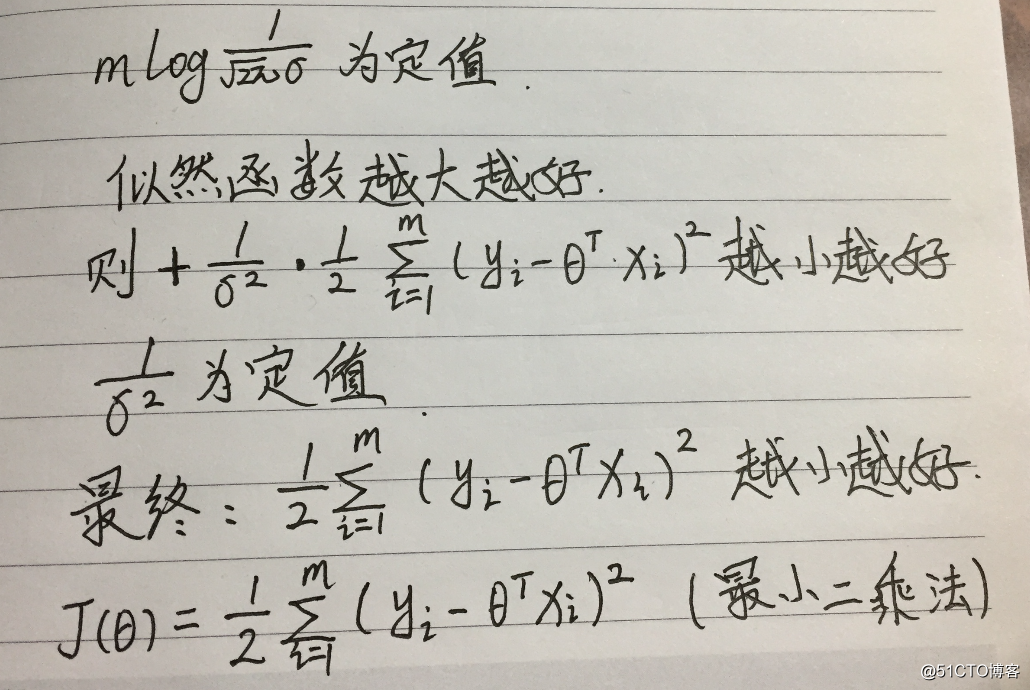 m log 1/(√2π σ) 为定值.
似然函数越大越好.
则 + 1/σ² · 1/2 Σ_{i=1}^{m} (y_i - θ^T · x_i)² 越小越好
1/σ² 为定值.
最终: 1/2 Σ_{i=1}^{m} (y_i - θ^T x_i)² 越小越好.
J(θ) = 1/2 Σ_{i=1}^{m} (y_i - θ^T x_i)² (最小二乘法)
@51CTO博客